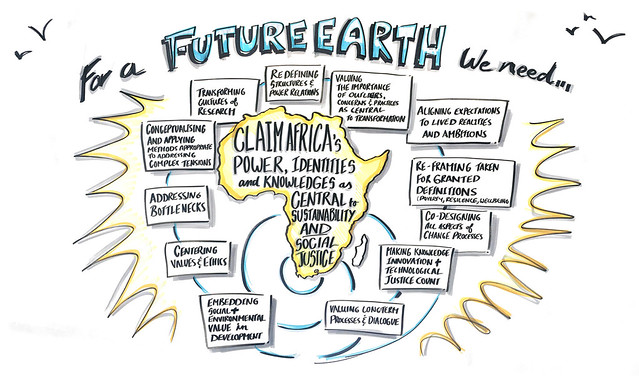 For a FUTURE EARTH We need...
REDEFINING
STRUCTURES &
POWER RELATIONS
VALUING
THE IMPORTANCE
OF OUTLIERS,
CONCERNS & PRACTICES
AS CENTRAL
TO TRANSFORMATION
TRANSFORMING
CULTURES of
RESEARCH
ALIGNING EXPECTATIONS
TO LIVED REALITIES
AND AMBITIONS
CONCEPTUALISING
AND APPLYING
METHODS APPROPRIATE
TO ADDRESSING
COMPLEX TENSIONS
CLAIM AFRICA's
POWER, IDENTITIES
and KNOWLEDGES as
CENTRAL to
SUSTAINABILITY
AND
SOCIAL
JUSTICE
RE-FRAMING TAKEN
FOR GRANTED
DEFINITIONS
(POVERTY, RESILIENCE, WELLBEING
ADDRESSING
BOTTLENECKS
CO-DESIGNING
ALL ASPECTS of
CHANGE PROCESSES
CENTERING
VALUES & ETHICS
MAKING KNOWLEDGE
INNOVATION +
TECHNOLOGICAL
JUSTICE COUNT
EMBEDDING
SOCIAL +
ENVIRONMENTAL
VALUE in
DEVELOPMENT
VALUING LONGTERM
PROCESSES & DIALOGUE